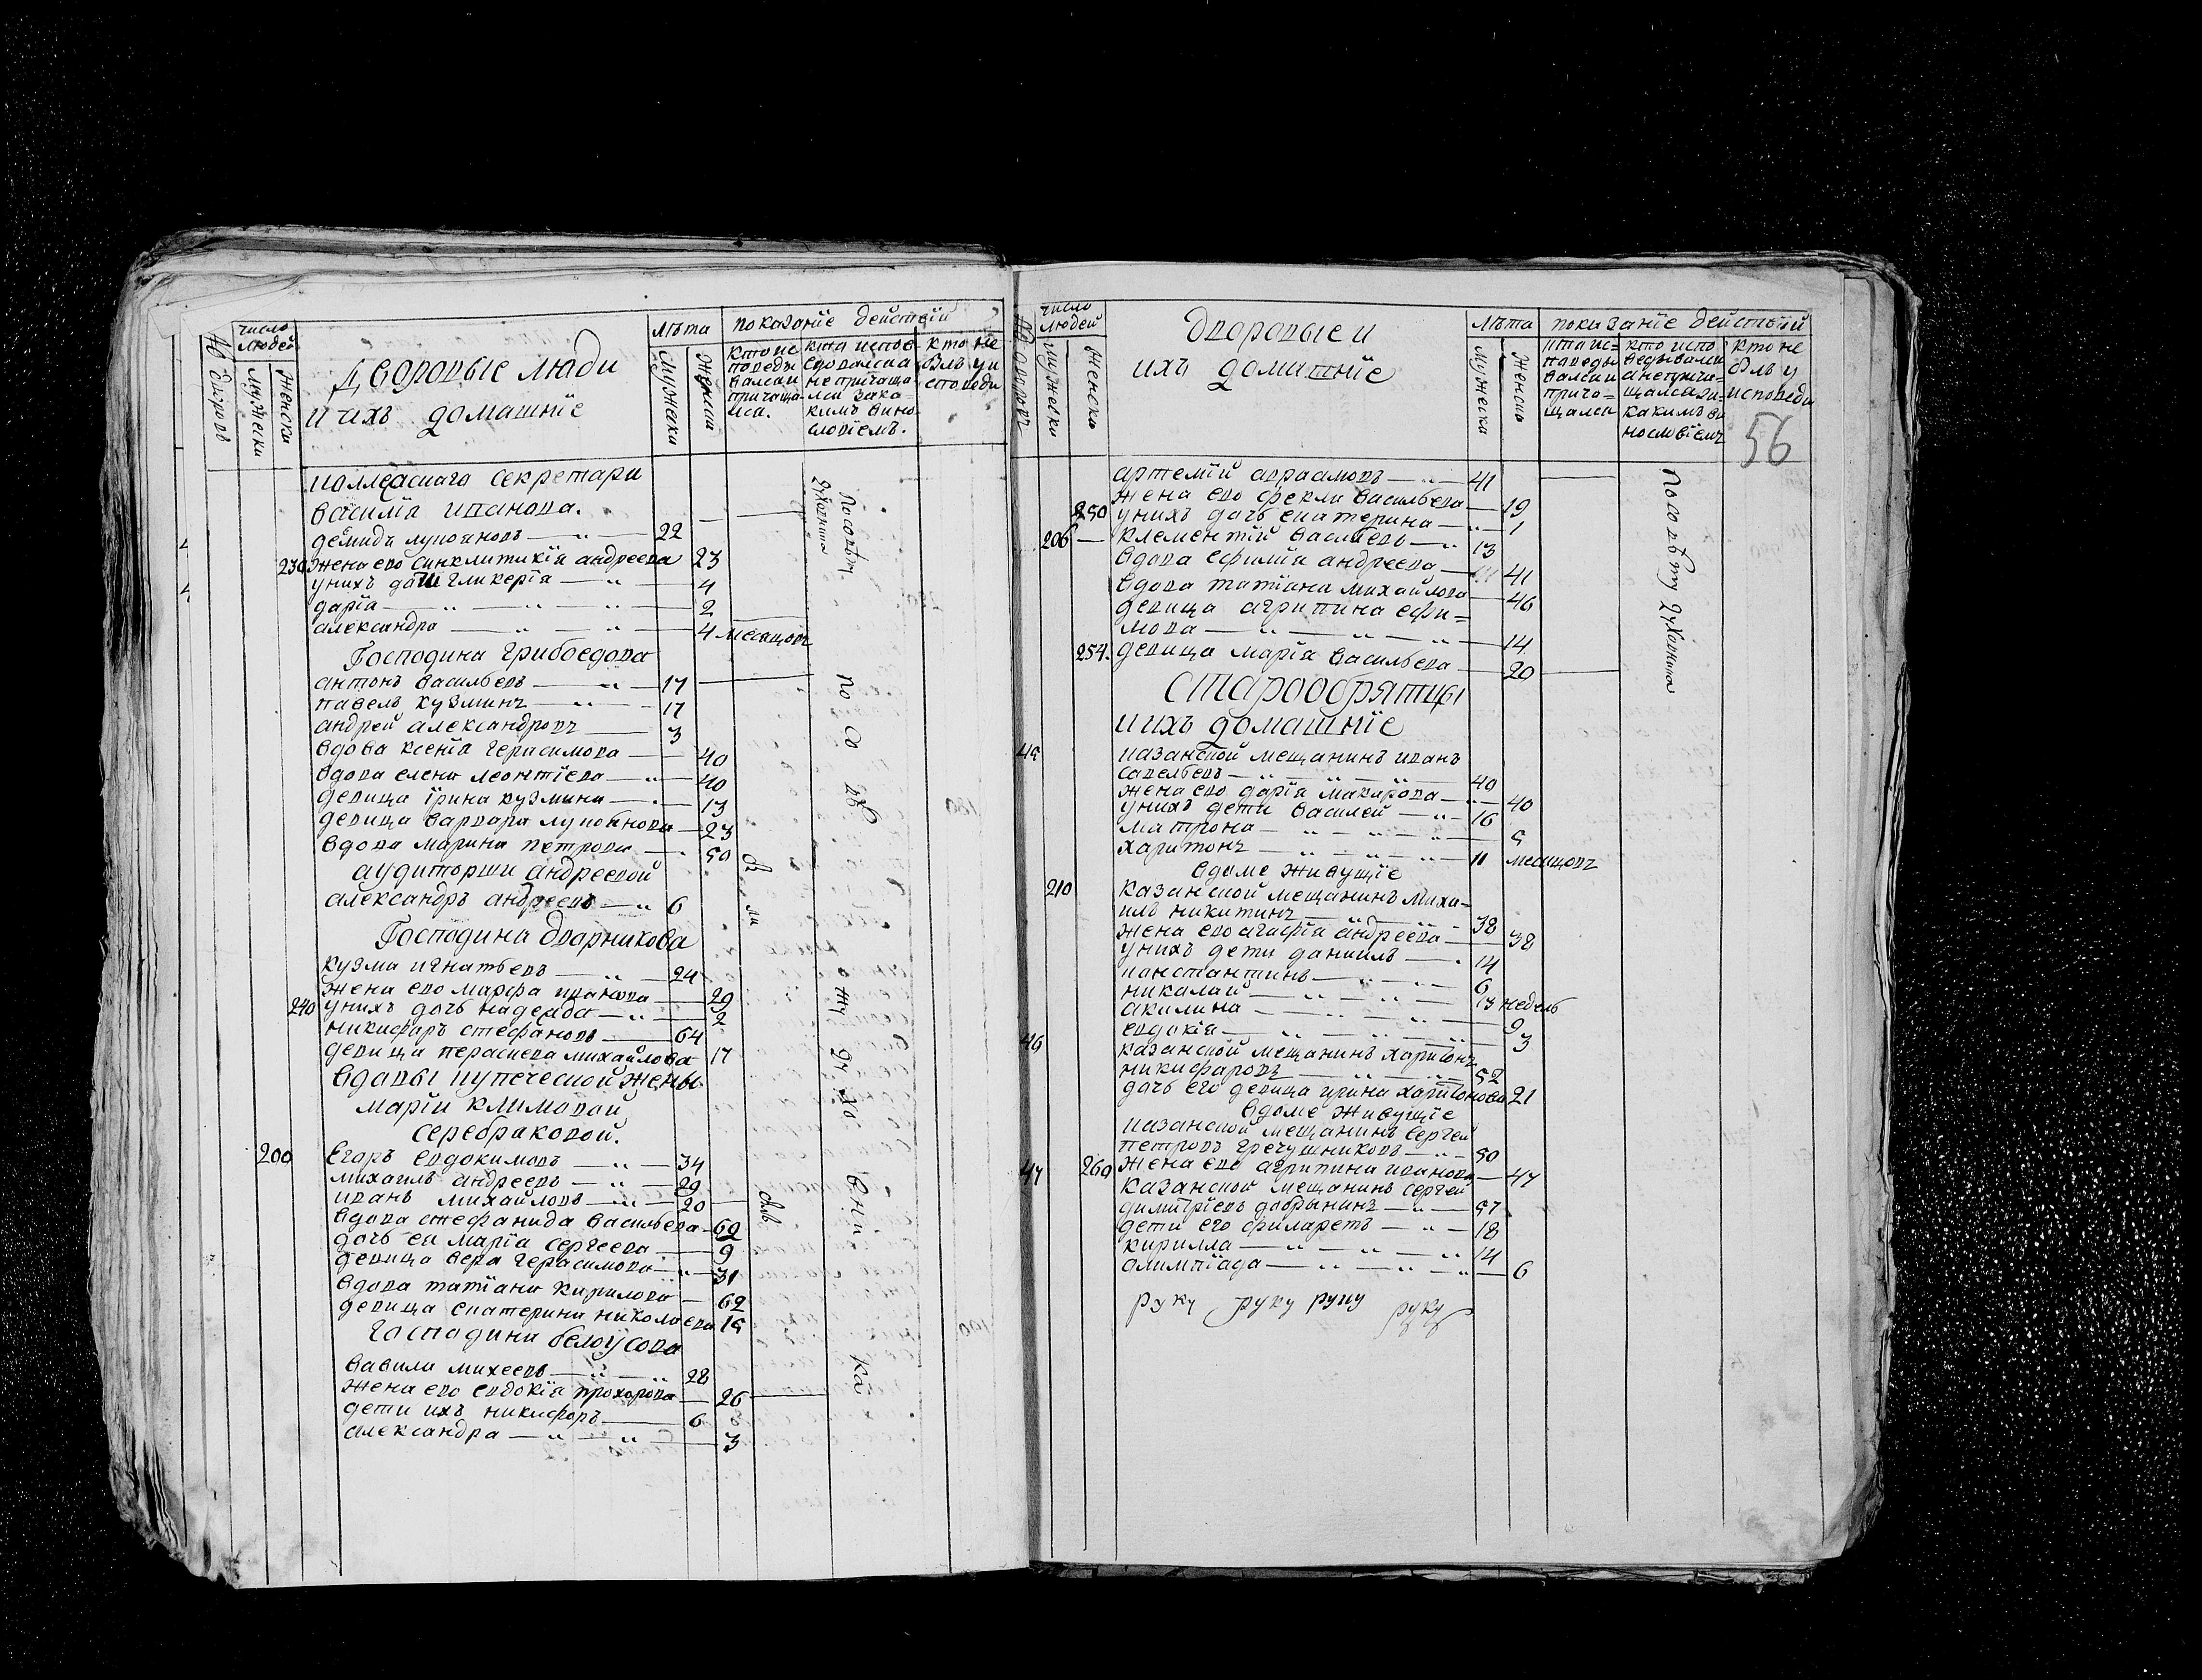 № дворовъ
число людей
мужески
женски
Дворовые люди
и ихъ домашнїе
лѣта
мужески
женски
показанїе действїй
кто не былъ у исповеди
коллежскаго секретаря
василїя иванова.
демидъ лукояновъ — 22
230 жена ево синклитикїя андреева 23
у нихъ дочь гликерїя — 4
дарїя — 2
александра — 4 месяцовъ
Господина грибоедова
антонъ васильевъ — 17
павелъ кузминъ — 17
андрей александровъ — 3
вдова ксенїя герасимова — 40
вдова елена леонтїева — 40
девица їрина кузмина — 13
девица варвара лукоянова — 23
вдова марина петрова — 50
аудиторши андреевой
александръ андреевъ — 6
Господина дворникова
кузма игнатьевъ — 24
жена ево марфа иванова — 29
240 у нихъ дочь надежда — 2
никифоръ стефановъ — 64
девица параскева михайлова 17
вдовы купеческой жены
марїи климовой
серебраковой.
200 Егоръ евдокимовъ — 34
михаилъ андреевъ — 29
иванъ михайловъ — 20
вдова стефанида васильева — 62
дочь ея марїя сергеева — 9
девица вера герасимова — 31
вдова татїана кирилова — 62
девица екатерина николаева 15
Господина белоусова
вавила михеевъ — 28
жена ево евдокїя прохорова — 26
дети ихъ никифоръ — 6
александра — 3
По совѣту духовника
были
число людей
мужески
женски
Дворовые и
ихъ домашнїе
лѣта
мужеска
женска
показанїе действїй
кто не былъ у исповеди
56
артемїй аврамовъ — 41
жена ево фекла васильева — 19
250 у нихъ дочь екатерина — 1
206 — клементїй васильевъ — 13
вдова ефимїя андреева — 41
вдова татїана михайлова — 46
девица агрипина ефи=
мова — 14
254. девица марїя васильева — 20
По совѣту духовника
Старообрятцы
и ихъ домашнїе
45 казанской мещанинъ иванъ
савельевъ — 40
жена ево дарїя макарова — 40
у нихъ дети василей — 16
матрона — 5
харитонъ — 11 месяцовъ
в доме живущїе
210 казанской мещанинъ миха=
илъ никитинъ — 38
жена ево агафїя андреева — 38
у нихъ дети данїилъ — 14
константинъ — 6
николай — 13 недель
акилина — 9
евдокїя — 3
46 казанской мещанинъ харитонъ
никифоровъ — 52
дочь его девица ирина харитонова 21
в доме живущїе
казанской мещанинъ сергей
петровъ гречушниковъ — 50
260 жена ево агрипина иванова — 47
47 казанской мещанинъ сергей
димитрїевъ добрынинъ — 57
дети его филаретъ — 18
кирилла — 14
олимпїада — 6
руку руку руку руку